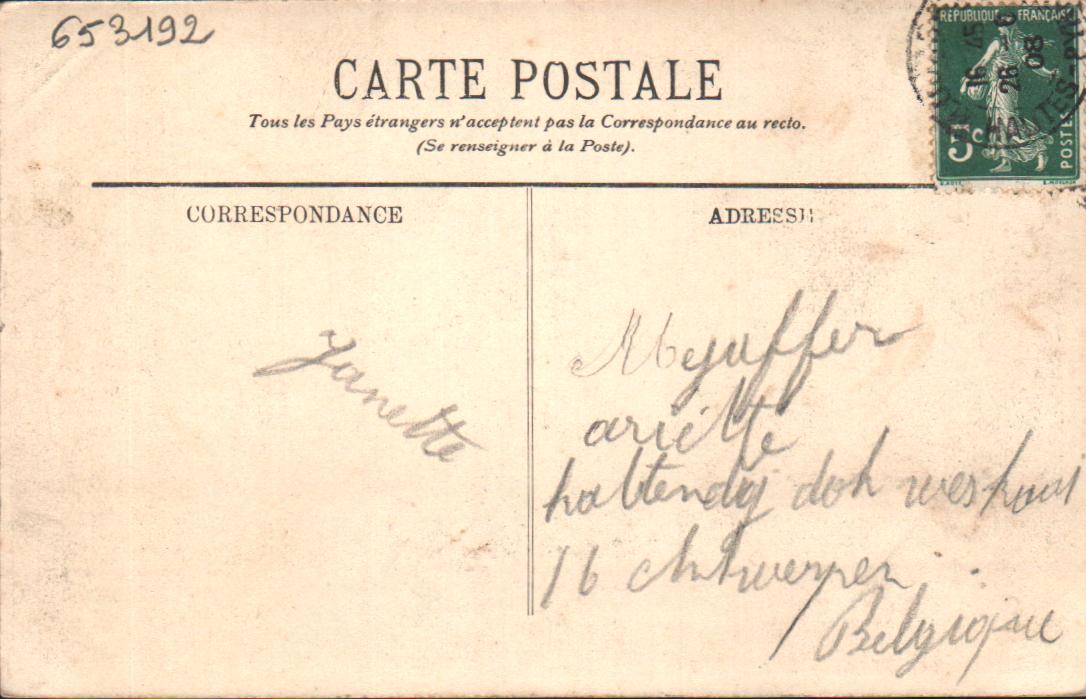 653192
RÉPUBLIQUE FRANÇAISE
16 45
26 -6
08
HAUTES-PYR
5c
POSTES
CARTE POSTALE
Tous les Pays étrangers n'acceptent pas la Correspondance au recto.
(Se renseigner à la Poste).
CORRESPONDANCE
ADRESSE
Janette
Mejuffer
ariëtte
dok
16 Antwerpen
Belgique